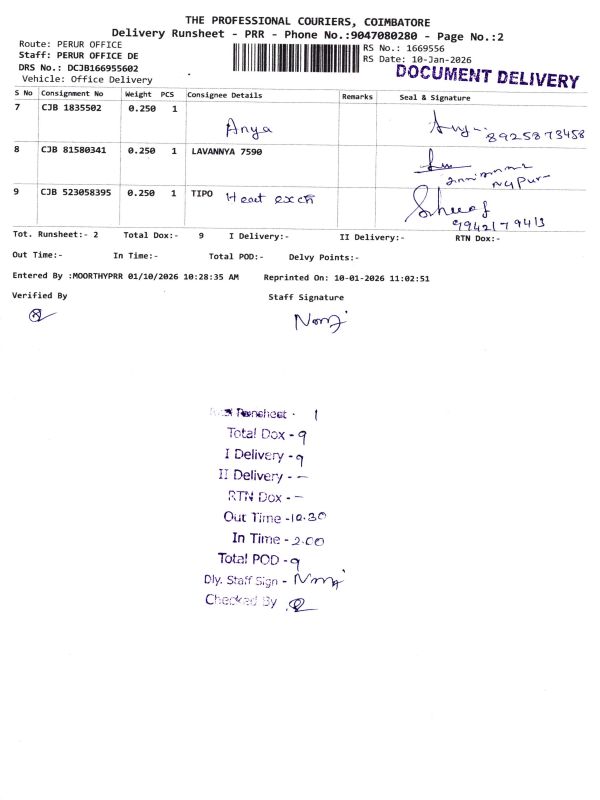 THE PROFESSIONAL COURIERS, COIMBATORE
Delivery Runsheet - PRR - Phone No.:9047080280 - Page No.:2
Route: PERUR OFFICE
Staff: PERUR OFFICE DE
DRS No.: DCJB166955602
Vehicle: Office Delivery
RS No.: 1669556
RS Date: 10-Jan-2026
DOCUMENT DELIVERY
S No Consignment No Weight PCS Consignee Details Remarks Seal & Signature
7 CJB 1835502 0.250 1 Anya 8925873458
8 CJB 81580341 0.250 1 LAVANNYA 7590
9 CJB 523058395 0.250 1 TIPO Heat exch
Tot. Runsheet:- 2 Total Dox:- 9 I Delivery:- II Delivery:- RTN Dox:-
Out Time:- In Time:- Total POD:- Delvy Points:-
Entered By :MOORTHYPRR 01/10/2026 10:28:35 AM Reprinted On: 10-01-2026 11:02:51
Verified By Staff Signature
Runsheet - 1
Total Dox - 9
I Delivery - 9
II Delivery - -
RTN Dox - -
Out Time - 10.30
In Time - 2.00
Total POD - 9
Dly. Staff Sign -
Checked By